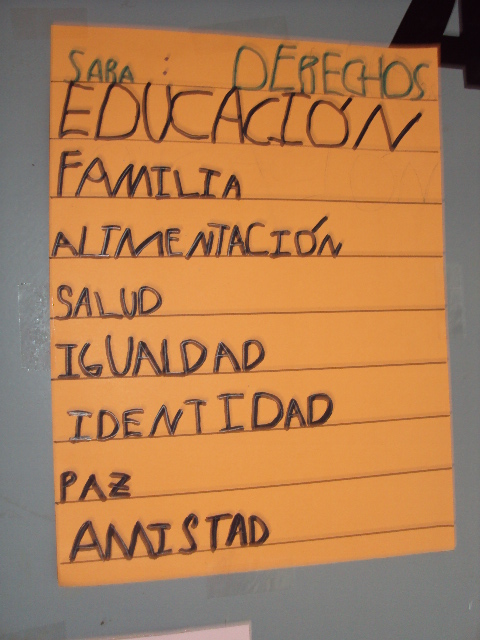 SARA : DERECHOS
EDUCACIÓN
FAMILIA
ALIMENTACIÓN
SALUD
IGUALDAD
IDENTIDAD
PAZ
AMISTAD